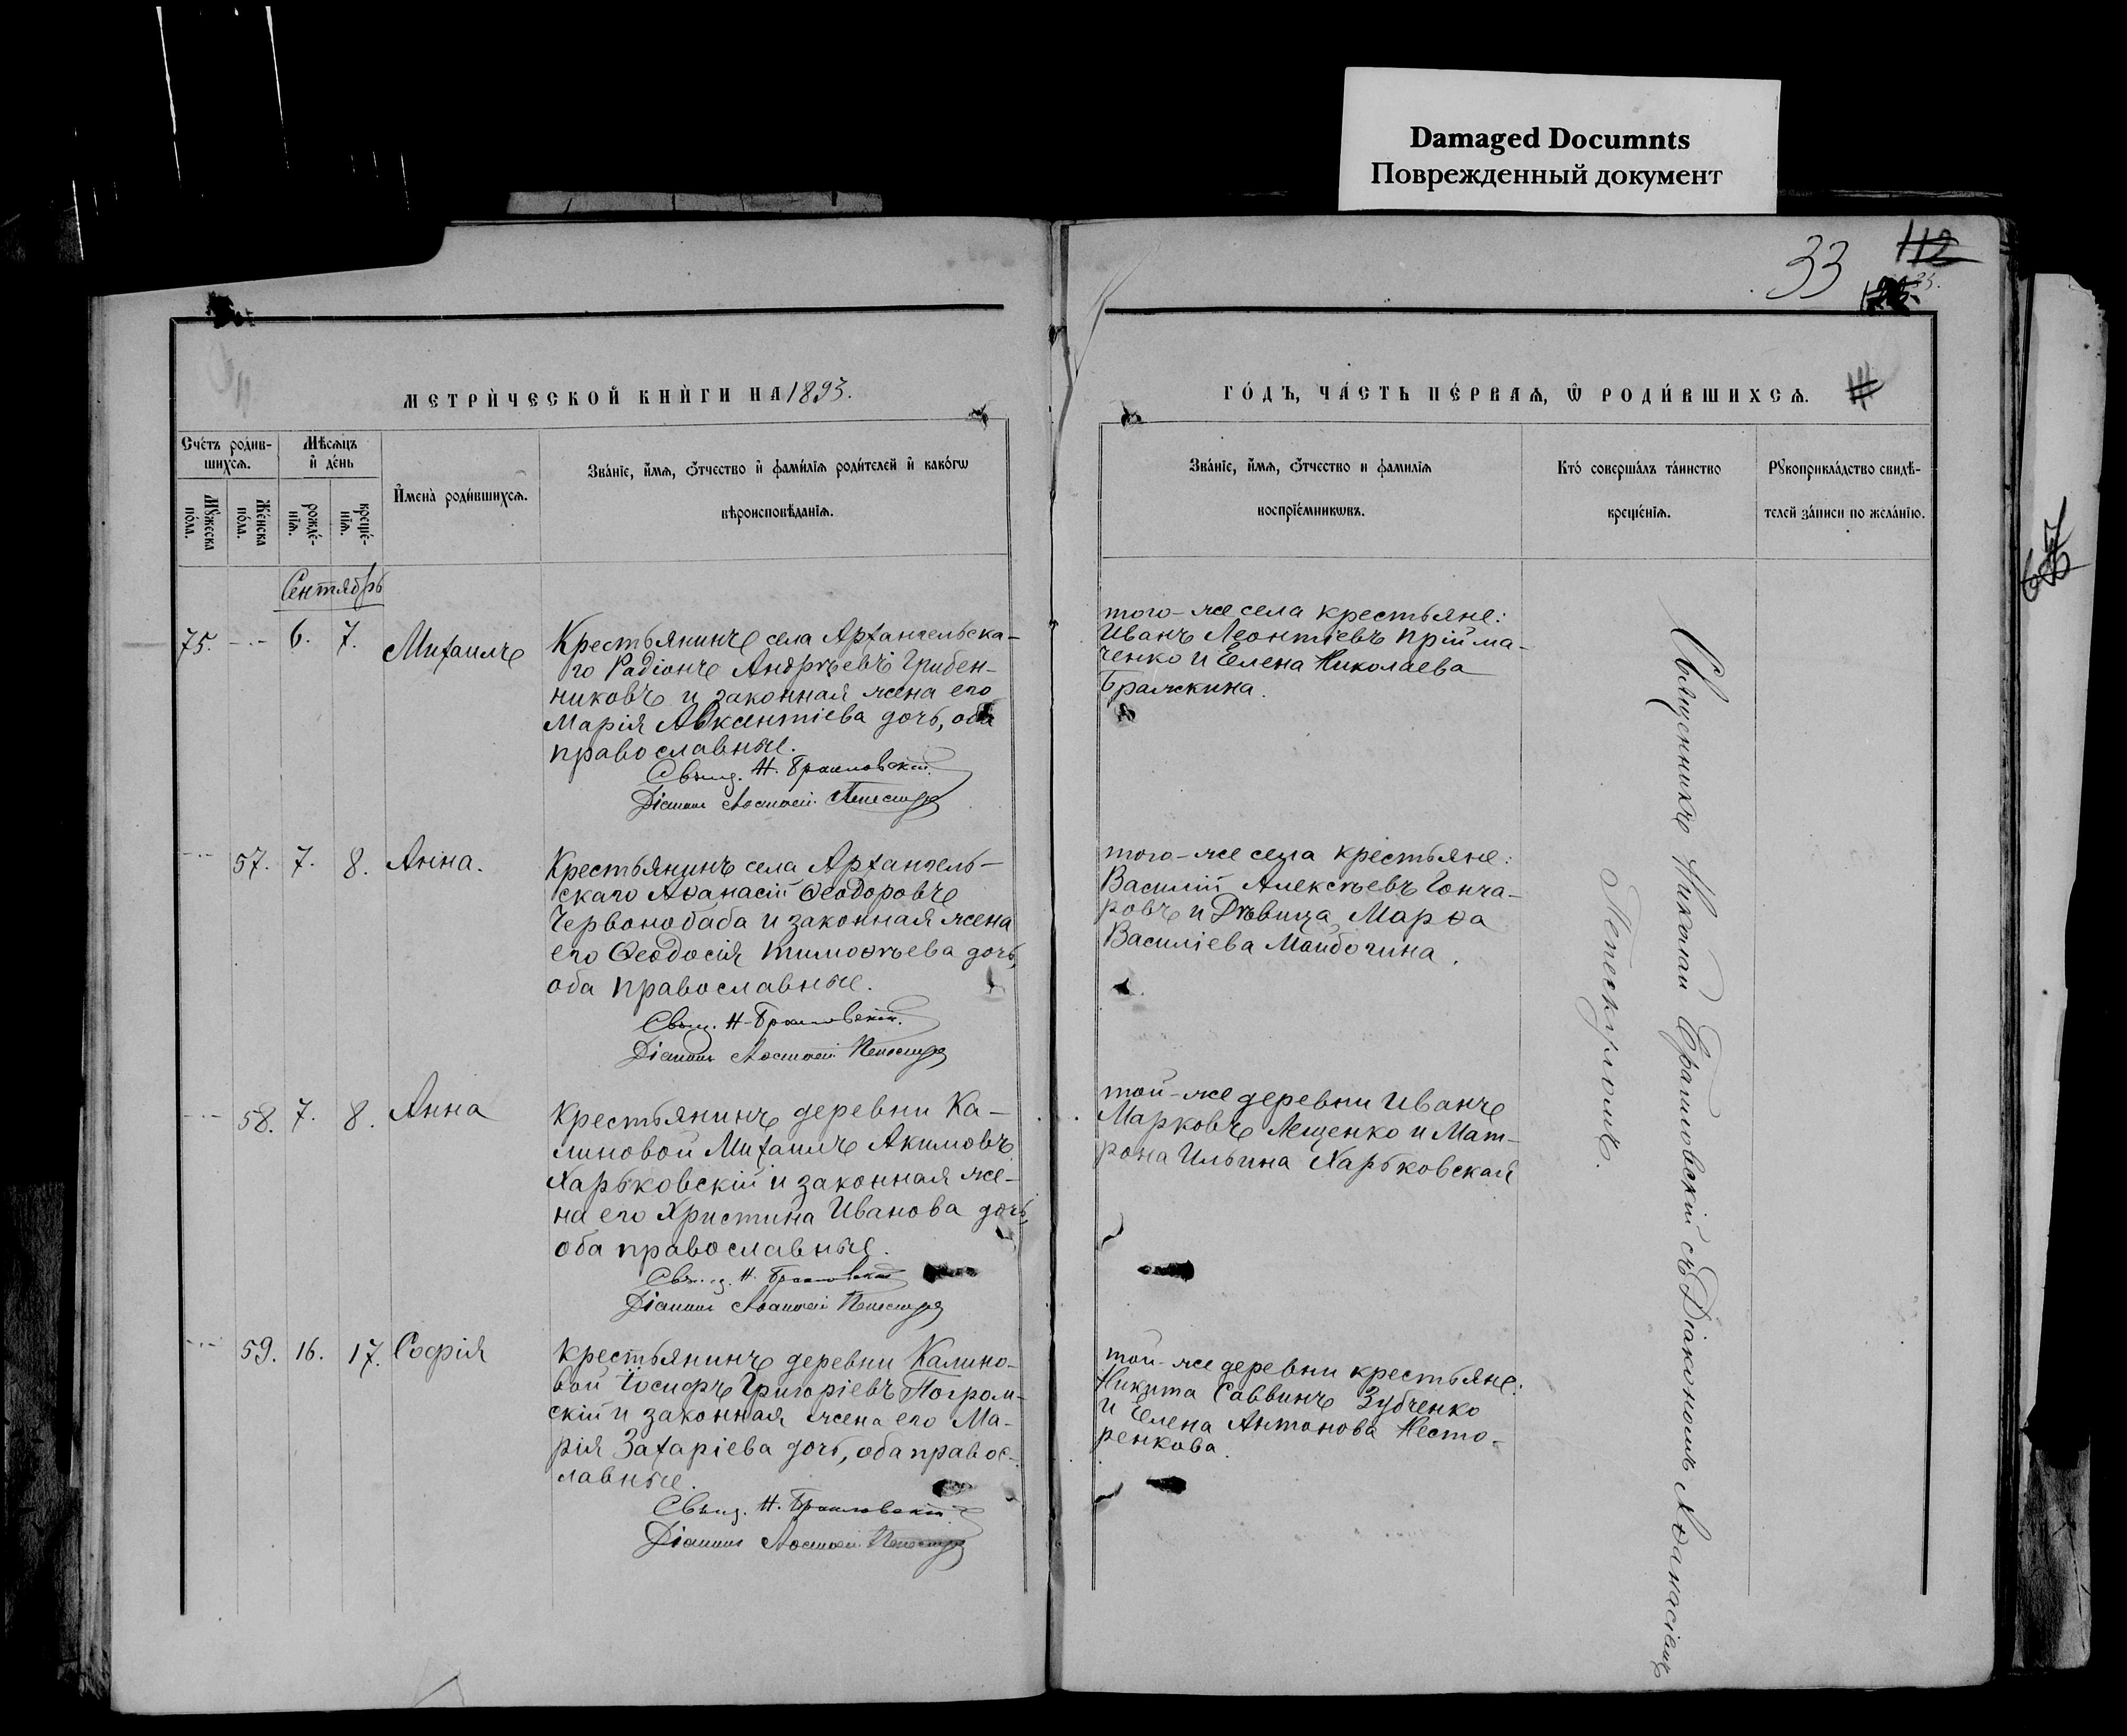 Damaged Documnts
Поврежденный документ
33
112
МЕТРИ́ЧЕСКОЙ КНИ́ГИ НА 1893.
ГО́ДЪ, ЧА́СТЬ ПЕ́РВАѦ, Ѽ РОДИ́ВШИХСѦ.
Сче́тъ роди́в-
шихсѧ.
Мѣ́сѧцъ
и҆ де́нь
Мꙋ́жеска
по́ла.
Же́нска
по́ла.
рожде́-
нїѧ.
креще́-
нїѧ.
И҆мена̀ роди́вшихсѧ.
Зва́нїе, и҆́мѧ, ѻ҆́тчество и҆ фами́лїѧ роди́телей и҆ како́гѡ
вѣроисповѣ́данїѧ.
Зва́нїе, и҆́мѧ, ѻ҆́тчество и фамилїѧ
воспрїе́мникѡвъ.
Кто́ соверша́лъ та́инство
креще́нїѧ.
Рꙋкоприкла́дство свидѣ́-
телей за́писи по жела́нїю.
Сентябрь
75. 6. 7. Михаилъ
Крестьянинъ села Архангельска-
го Радіонъ Андреевъ Грибен-
никовъ и законная жена его
Марія Авксентіева дочь, оба
православные.
Свящ. Н. Браиловскій
Діаконъ Аѳанасій Пепескуръ
того-же села крестьяне:
Иванъ Леонтіевъ Прійма-
ченко и Елена Николаева
Бражкина.
57. 7. 8. Анна.
Крестьянинъ села Архангель-
скаго Аѳанасій Ѳеодоровъ
Червонобаба и законная жена
его Ѳеодосія Тимоѳѣева дочь,
оба православные.
Свящ. Н. Браиловскій.
Діаконъ Аѳанасій Пепескуръ
того-же села крестьяне:
Василій Алексѣевъ Гонча-
ровъ и Дѣвица, Марѳа
Василіева
58. 7. 8. Анна
Крестьянинъ деревни Ка-
линовой Михаилъ Акимовъ
Харьковскій и законная же-
на его Христина Иванова дочь,
оба православные.
Свящ. Н. Браиловскій
Діаконъ Аѳанасій Пепескуръ
той-же деревни Иванъ
Марковъ Лещенко и Мат-
рона Ильина Харьковская
59. 16. 17. Софія
Крестьянинъ деревни Калино-
вой Іосифъ Григоріевъ Погром-
скій и законная жена его Ма-
рія Захаріева дочь, оба правос-
лавные.
Свящ. Н. Браиловскій.
Діаконъ Аѳанасій Пепескуръ
той-же деревни крестьяне:
Никита Саввинъ Зубченко
и Елена Антонова Несто-
ренкова.
Священникъ Николай Браиловскій съ Діакономъ Аѳанасіемъ
Пепескуромъ.